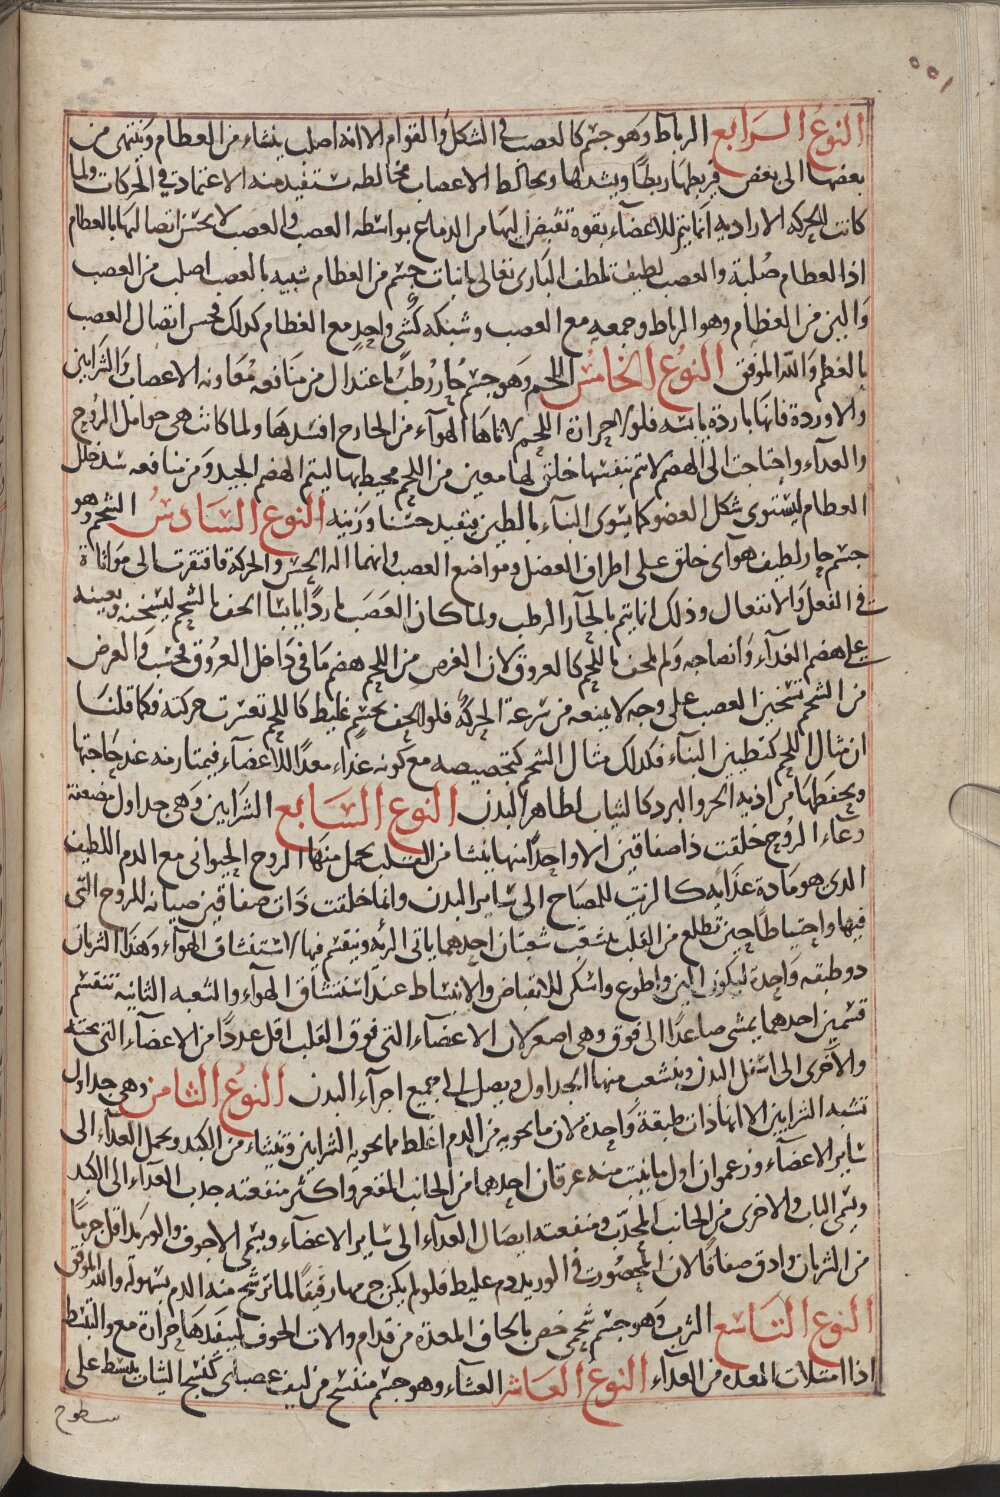 النوع الرابع الرباط وهو جسم كالعصب في الشكل والقوام الا انه اصلب ينشاء من العظام وينتهى من
بعضها الى بعض فيربطها ربطًا ويشدها ويخالط الاعصاب مخالطه تستفيد منه الاعتماد في الحركات ولما
كانت الحركه الاراديه انما يتم للاعضاء بقوه تفيض اليها من الدماغ بواسطه العصب والعصب لا يحسن اتصالها بالعظام
اذا العظام صُلبة والعصب لطيف تلطف البارى تعالى بانبات جسم من العظام شبيه بالعصب اصلب من العصب
والين من العظام وهو الرباط وجمعه مع العصب وشبكه كشى واحدٍ مع العظام كدلك فحسن اتصال العصب
بالعظم والله الموفق النوع الخامس اللحم وهو جسم حار رطبٌ باعتدال من منافعه مُعاونه الاعصاب والشرايين
والاوردة فانها باردة يابسه فلولا حرارة اللحم لاتاها الهوآء من الخارج افسدها ولما كانت هى حوامل الروح
والغدآء واحتاجت الى الهضم لا تتم بنفسها خلق لها معين من اللحم محيط بها ليتم الهضم الجيد ومن منافعه سد خلل
العظام ليستوى شكل العضو كما يسوى البنآء بالطين فيفيد حسنا وزينه النوع السادس الشحم وهو
جسم حار لطيف هوآى خلق على اطراف العضل ومواضع العصب وانهما اله الحس والحركة فافتقرت الى مواتاة
في الفعل والانفعال وذلك انما يتم بالحار الرطب ولما كان العصَب باردًا يابسًا الحف بالشحم ليسخنه ويعينه
على هضم الغدآء وانضاجه ولم يلحف باللحم كالعروق لان الغرص من اللحم هضم ما في داخل العروق فحسب والغرض
من الشحم تسخين العصب على وجه لا يمنعه من سرعة الحركة فلو الحف بجسمٍ غليظ كاللحم تعسرت حركته فكما قلنا
ان مثال اللحم كتطيين البنآء فكدلك مثال الشحم كتجصيصه مع كونه غذاء معدًا للاعضآء فيمتار منه عند حاجتها
ويحفظها من اذيه الحر والبرد كالثياب لظاهر البدن النوع السابع الشرايين وهى جداول مضعفة
وعاء الروح خلقت ذا صفاقين الا واحدًا منها ينشا من القلب يحمل منها الروح الحيوانى مع الدم اللطيف
الدى هو مادة غذآيه كالزيت للمصباح الى ساير البدن وانما خلقت ذات صفاقين صيانه للروح التى
فيها واحتياطًا حين تطلع من القلب يتشعب شعبتان احدهما ياتى الرئه وينقسم فيها لاستنشاق الهوآء وهذا الشريان
دو طبقه واحدة ليكون الين واطوع واسكن للانقباض والانبساط عند استنشاق الهوآء والشعبه الثانيه تنقسم
قسمين احدهما يمشى صاعدًا الى فوق وهى اصغر لان الاعضآء التى فوق القلب اقل عددًا من الاعضآء التى تحته
والاخرى الى اسفل البدن ويتشعب منها الجداول ويصل الى جميع اجزآء البدن النوع الثامن وهى جداول
تشبه الشرايين الا انها ذات طبقة واحدة لان ما تحويه من الدم اغلظ مما تحويه الشرايين وتنشاء من الكبد ويحمل الغدآء الى
ساير الاعضآء وزعموا ان اول ما ينبت منه عرقان احدهما من الجانب المقعر واكثر منفعته جدب الغدآء الى الكبد
ويسمى الباب والاخرى من الجانب المحدّب ومنفعته ايصال الغدآء الى ساير الاعضآء ويسمى الاجوف والوريد اقل جرمًا
من الشريان وادق صفاقًا لان المحصور في الوريد دم غليظ فلو لم يكن جرمها رقيقًا لما ترشح منه الدم بسهولة والله الموفق
النوع التاسع الثرب وهو جسم شحمى خص بالحاف المعدة من قدام والات الجوف ليفيدها حرارة مع والتبسط
اذا امتلات المعده من الغدآء النوع العاشر الغشاء وهو جسم منتسج من ليف عصبانى كنسج الثياب ينبسط على
سطوح